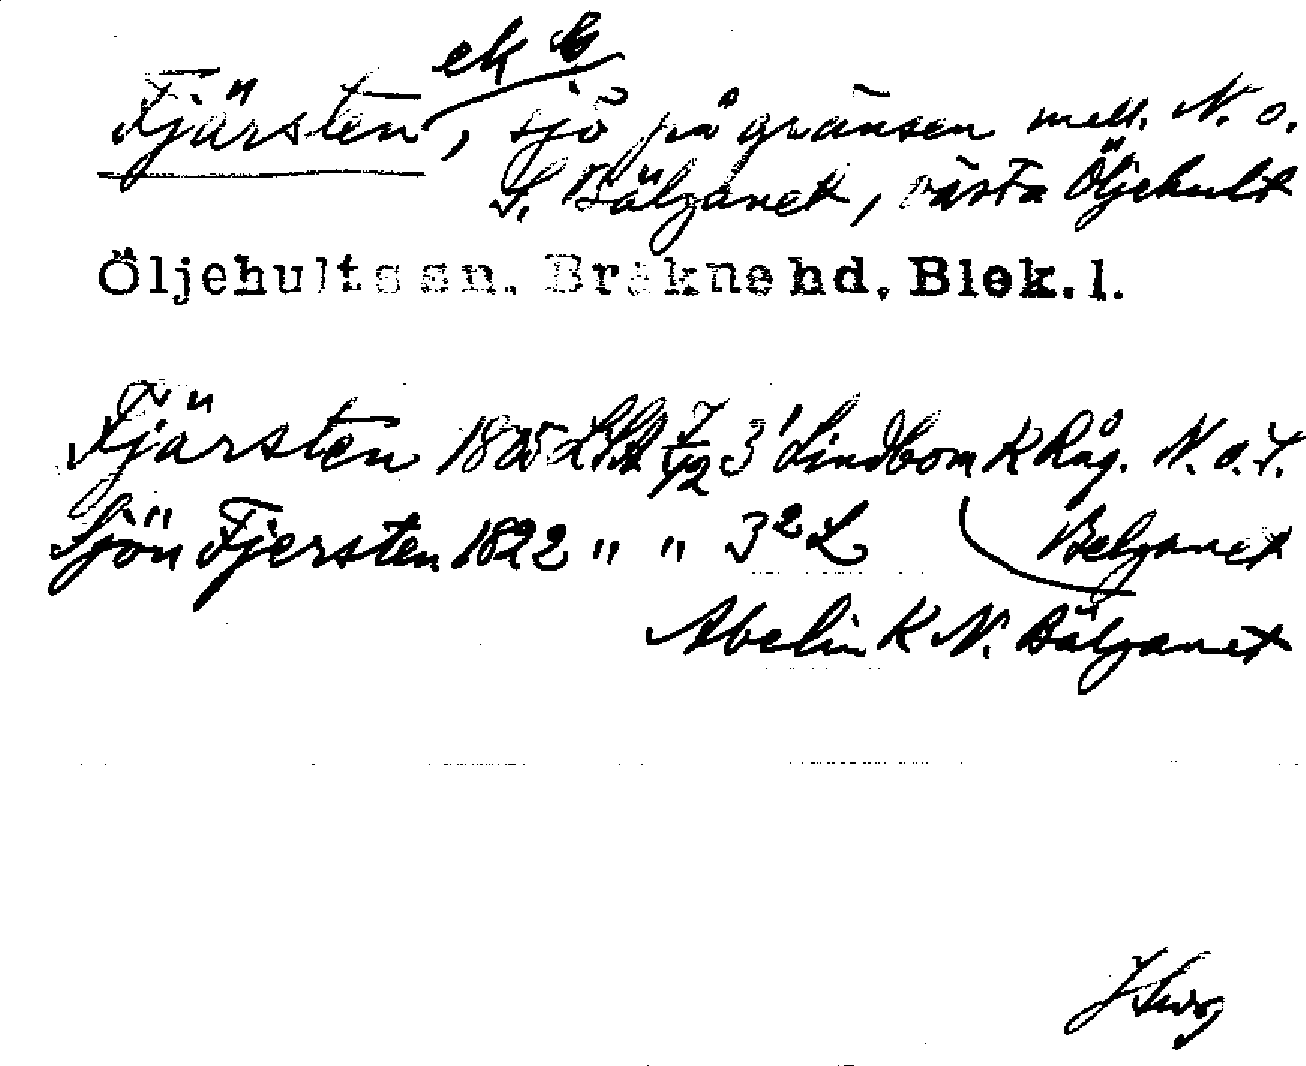 ek
Fjärsten, sjö på gränsen mell. N. o.
S. Bälganet, västra Öljehult
Öljehults sn. Bräkne hd. Blek. l.
Fjärsten 1805 LSA 7/12 3¹ Lindbom K Råg. N. o. S.
Sjön Fjersten 1822 " " 3² L Belganet
Abelin K N. Bälganet